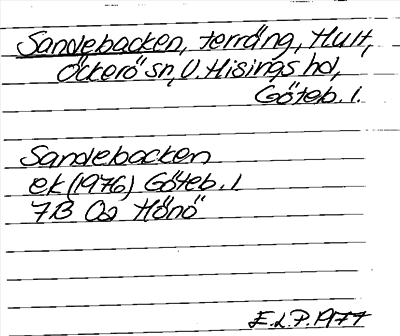 Sandebacken, terräng, Hult,
Öckerö sn, V. Hisings hd,
Göteb. l.
Sandebacken
ek (1976) Göteb. l
7B 0a Hönö
E.L.P. 1977